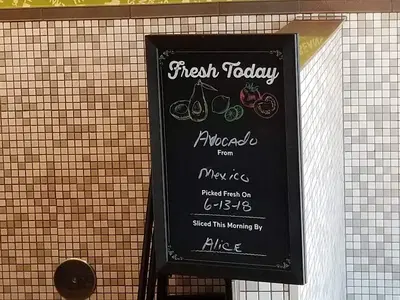 Fresh Today
Avocado
From
Mexico
Picked Fresh On
6-13-18
Sliced This Morning By
Alice